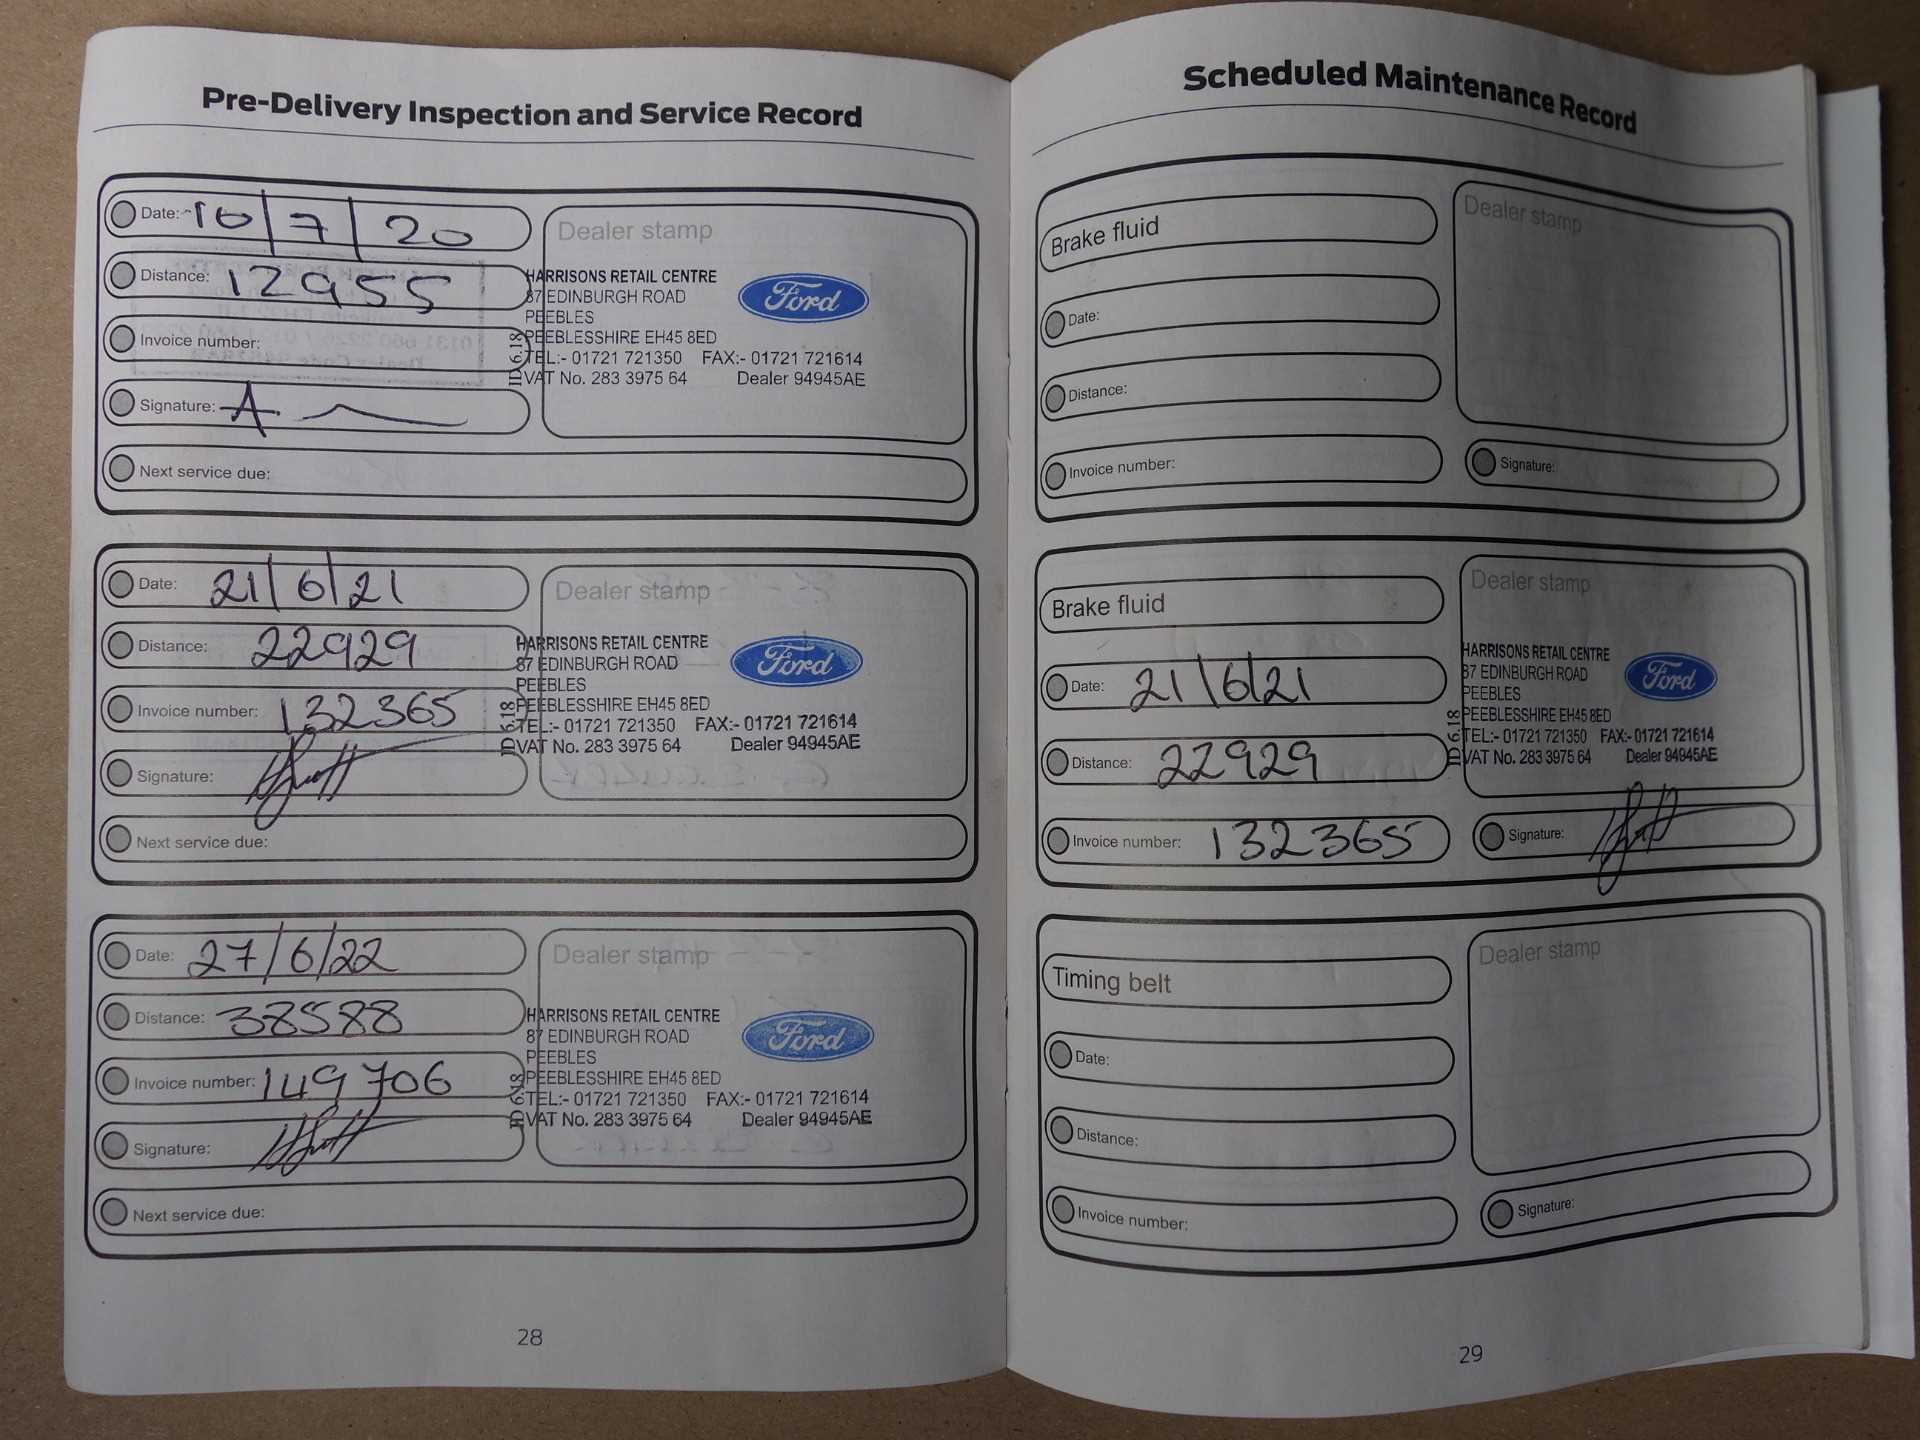 Pre-Delivery Inspection and Service Record
Date: 10/7/20
Distance: 12955
Invoice number:
Signature:
Next service due:
Dealer stamp
HARRISONS RETAIL CENTRE
87 EDINBURGH ROAD
PEEBLES
PEEBLESSHIRE EH45 8ED
TEL:- 01721 721350 FAX:- 01721 721614
VAT No. 283 3975 64 Dealer 94945AE
ID 6.18
Ford
Date: 21/6/21
Distance: 22929
Invoice number: 132365
Signature:
Next service due:
Dealer stamp
HARRISONS RETAIL CENTRE
87 EDINBURGH ROAD
PEEBLES
PEEBLESSHIRE EH45 8ED
TEL:- 01721 721350 FAX:- 01721 721614
VAT No. 283 3975 64 Dealer 94945AE
ID 6.18
Ford
Date: 27/6/22
Distance: 38588
Invoice number: 149706
Signature:
Next service due:
Dealer stamp
HARRISONS RETAIL CENTRE
87 EDINBURGH ROAD
PEEBLES
PEEBLESSHIRE EH45 8ED
TEL:- 01721 721350 FAX:- 01721 721614
VAT No. 283 3975 64 Dealer 94945AE
ID 6.18
Ford
28
Scheduled Maintenance Record
Brake fluid
Date:
Distance:
Invoice number:
Dealer stamp
Signature:
Brake fluid
Date: 21/6/21
Distance: 22929
Invoice number: 132365
Dealer stamp
HARRISONS RETAIL CENTRE
87 EDINBURGH ROAD
PEEBLES
PEEBLESSHIRE EH45 8ED
TEL:- 01721 721350 FAX:- 01721 721614
VAT No. 283 3975 64 Dealer 94945AE
ID 6.18
Ford
Signature:
Timing belt
Date:
Distance:
Invoice number:
Dealer stamp
Signature:
29